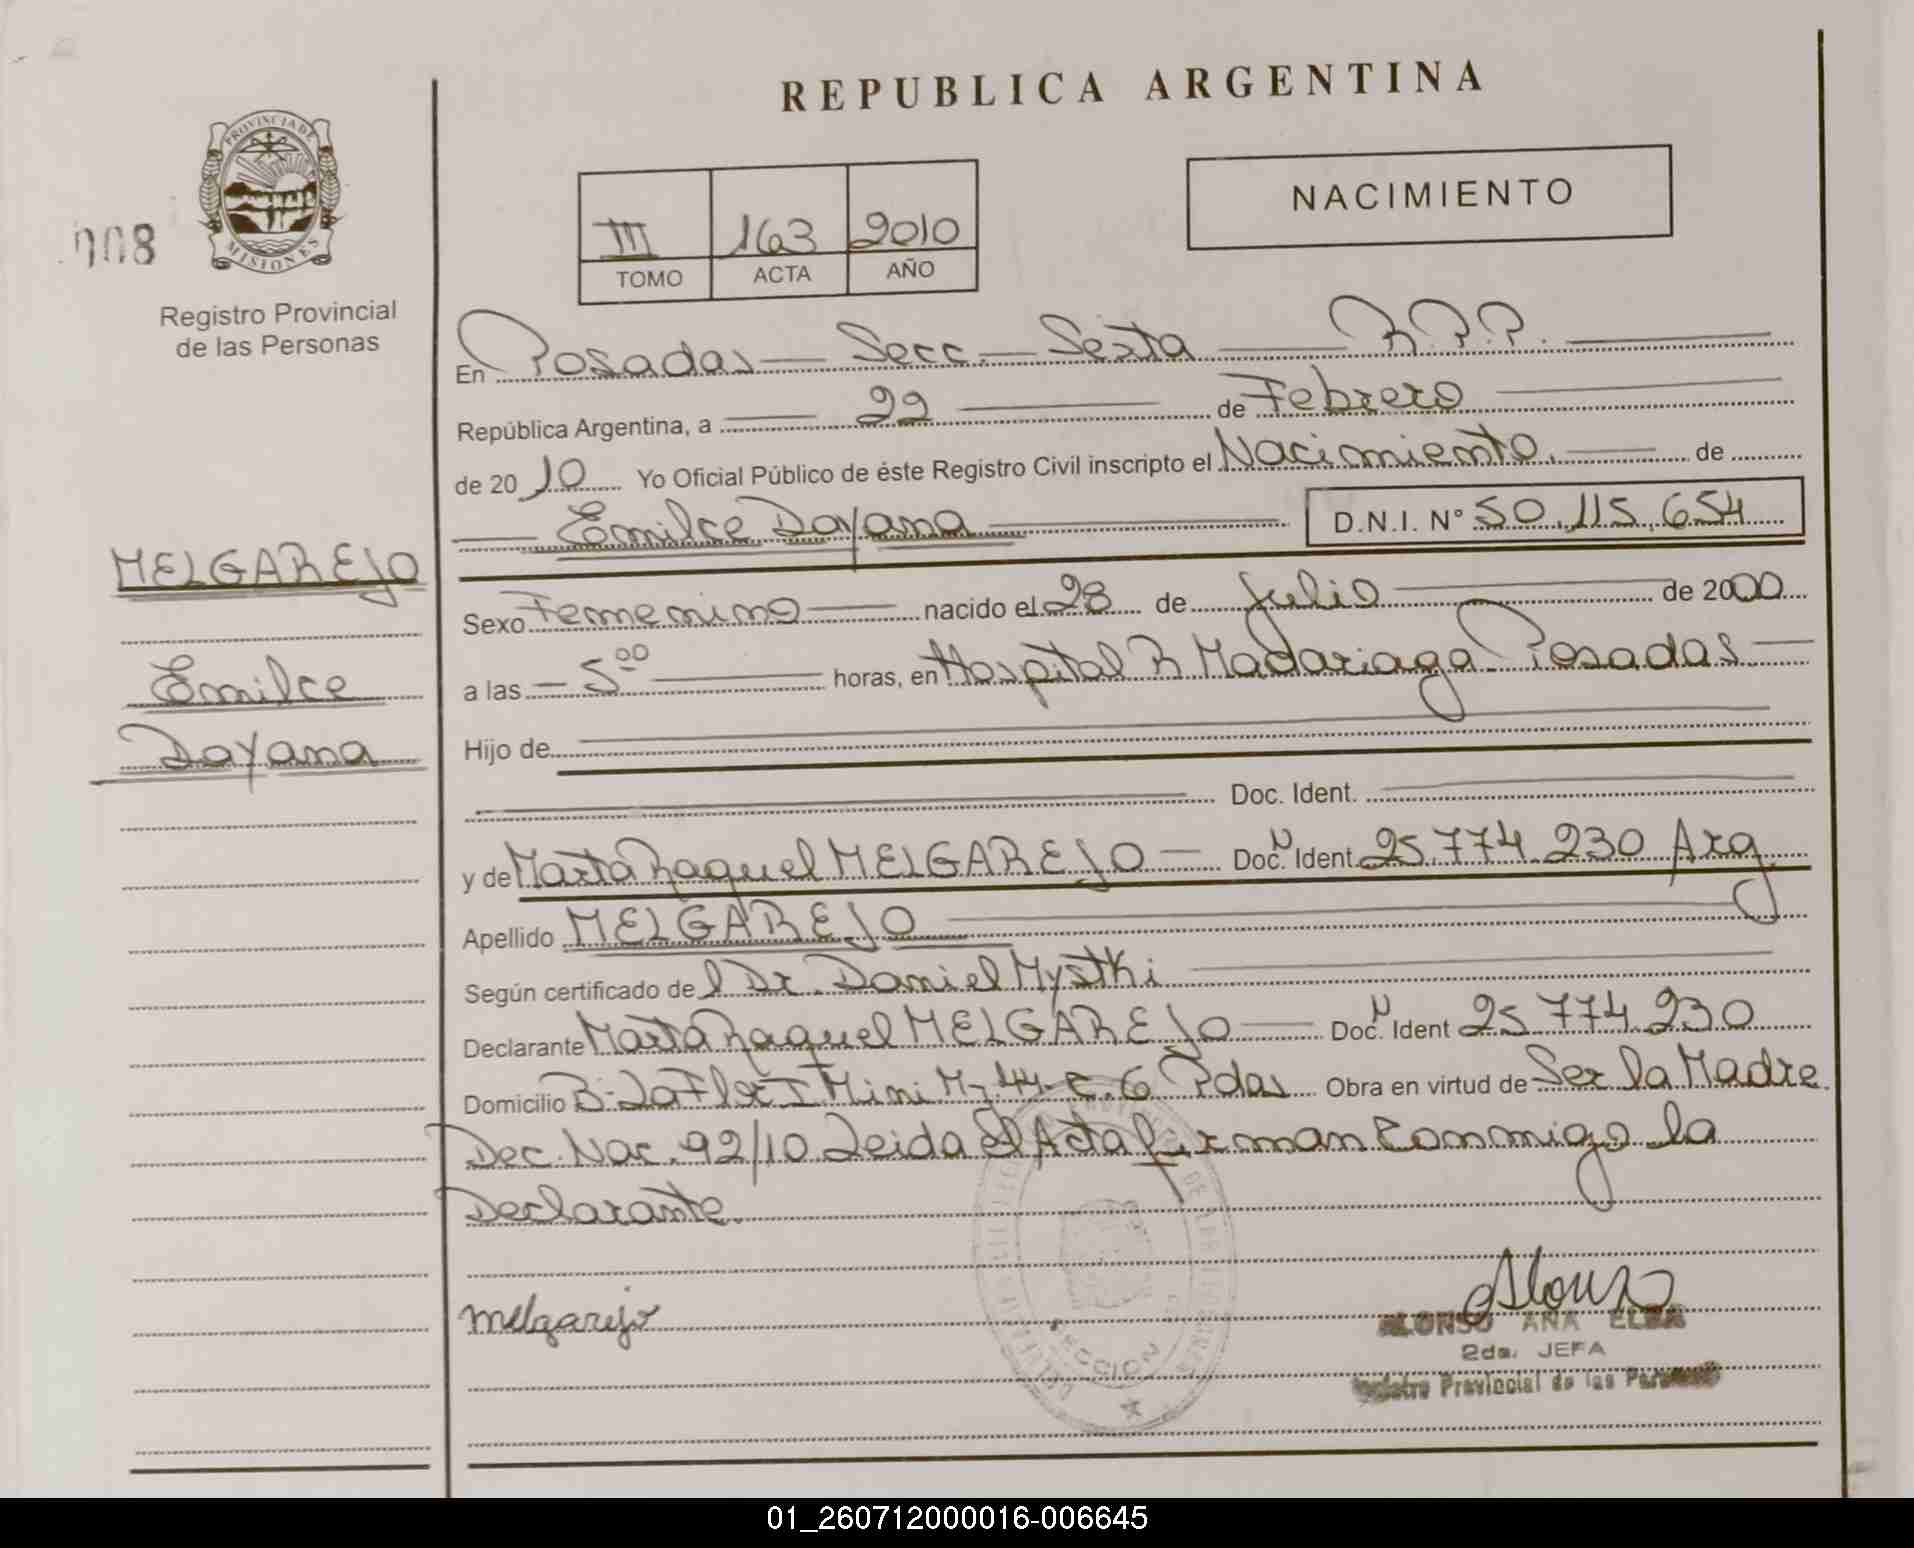 REPUBLICA ARGENTINA
PROVINCIA DE
MISIONES
008
Registro Provincial
de las Personas
III 163 2010
TOMO ACTA AÑO
NACIMIENTO
En Posadas Secc. Sexta R.P.P.
República Argentina, a 22 de Febrero
de 2010 Yo Oficial Público de éste Registro Civil inscripto el Nacimiento. de
Emilce Dayana D.N.I. N° 50.115.654
MELGAREJO
Emilce
Dayana
Sexo Femenino nacido el 28 de Julio de 2000
a las 5 00 horas, en Hospital R Madariaga Posadas
Hijo de
Doc. Ident.
y de Marta Raquel MELGAREJO Doc. Ident. 25.774.230 Arg
Apellido MELGAREJO
Según certificado de l Dr. Daniel Mysthi
Declarante Marta Raquel MELGAREJO Doc. Ident 25 774 230
Domicilio B: La Flor I Mini Mz 44 C. 6 Pdas Obra en virtud de Ser la Madre
Dec. Nac. 92/10 Leida El Acta firman Conmigo la
Declarante.
melgarejo
Alonso
ALONSO ANA ELBA
2da. JEFA
Registro Provincial de las Personas
SECCION
01_260712000016-006645